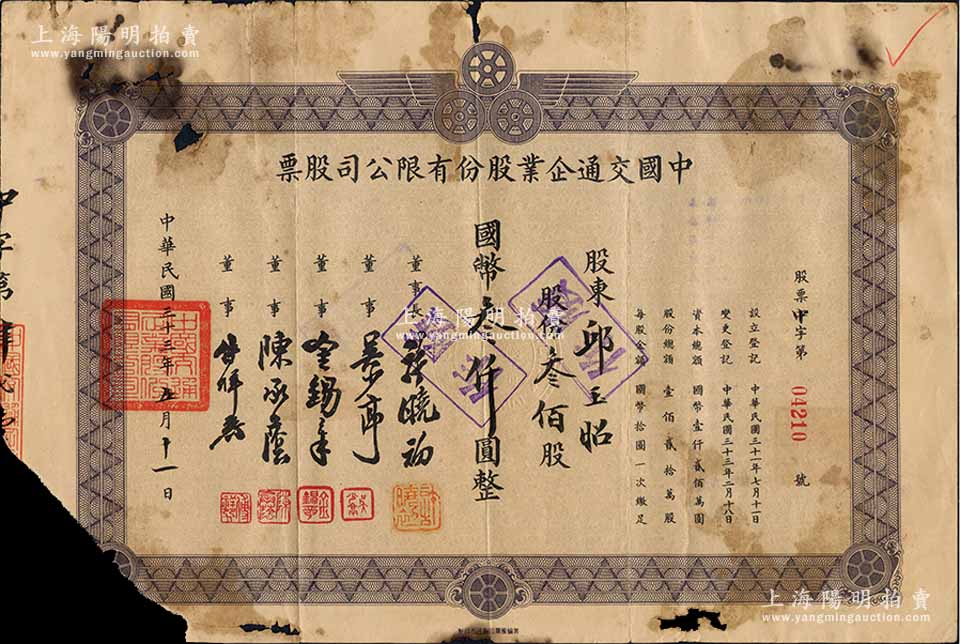 上海陽明拍賣
www.yangmingauction.com
中國交通企業股份有限公司股票
股票中字第 04210 號
設立登記 中華民國三十一年七月十一日
變更登記 中華民國三十三年二月十八日
資本總額 國幣壹仟貳佰萬圓
股份總額 壹佰貳拾萬股
每股金額 國幣拾圓一次繳足
股東 邱玉昭
股份 叁佰股
國幣叁仟圓整
董事長
董事
董事 金錫章
董事 陳承蔭
董事
中華民國三十三年五月十一日
中字第
上海陽明拍賣
www.yangmingauction.com
上海陽明拍賣
www.yangmingauction.com